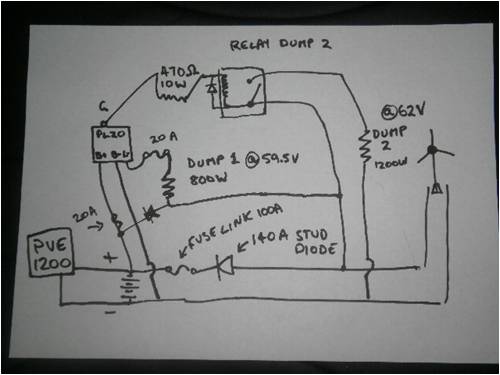 RELAY DUMP 2
470Ω
10W
G
PL20
B+ B- L-
20A
DUMP 1 @ 59.5V
800W
@62V
DUMP
2
1200W
20A
FUSE LINK 100A
140A STUD
DIODE
PVE
1200
+
-